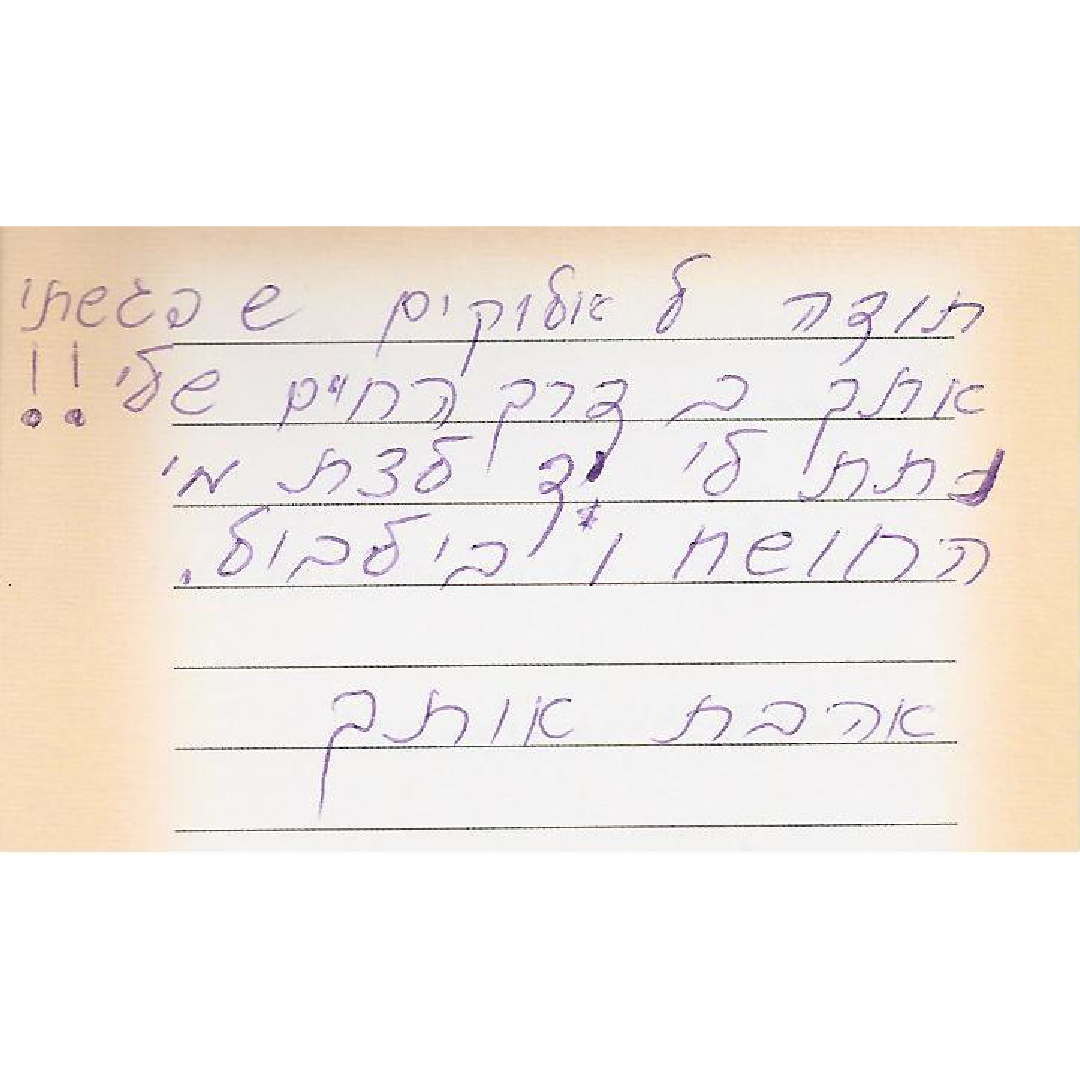 תודה ל אלוקים ש פגשתי
אתך ב דרך החיים שלי !!
נתת לי יד לצת מי
החושח ו בילבול.
אהבת אותך